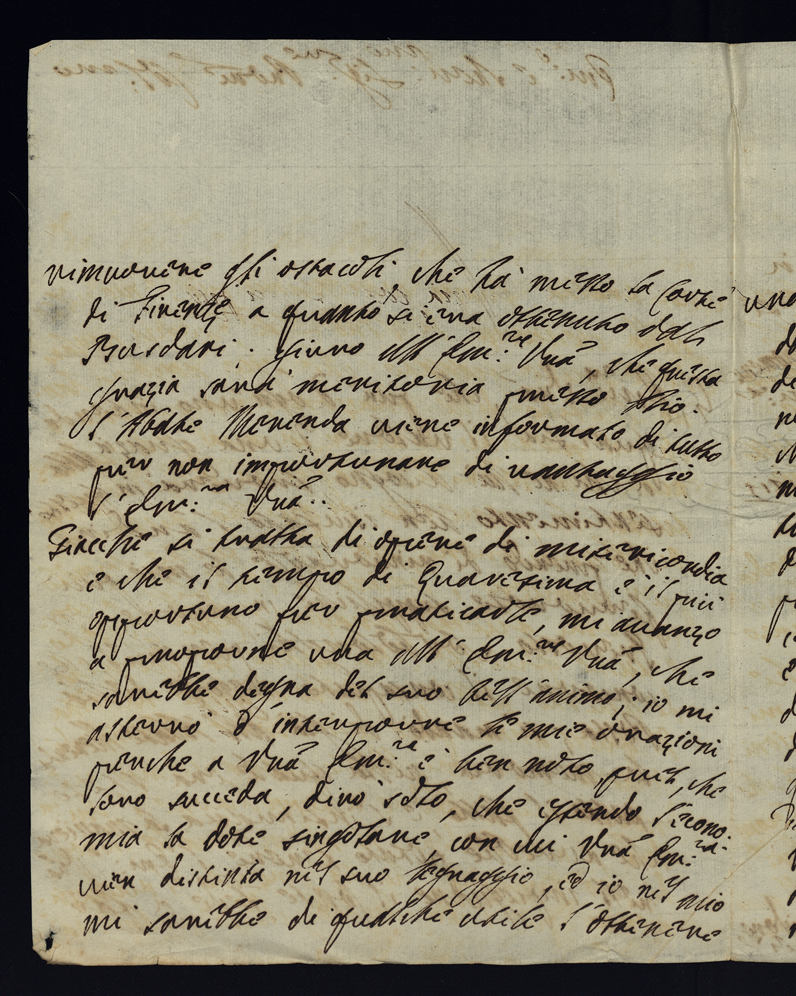 rimuovere gli ostacoli, che ha messo la Corte
di Firenze a quanto si era ottenuto dal
Busdari. Giuro all' Em.ᶻᵃ Vrã, che questa
grazia sarà meritoria presso Dio.
l'Abate Merenda viene informato di tutto
per non importunare di vantaggio
l'Em.ᶻᵃ Vrã..
Giacche si tratta di opere di misericordia
e che il tempo di Quaresima è il più
opportuno per praticarle, mi avanzo
a proporne una all' Em.ᶻᵃ Vrã, che
sarebbe degna del suo bell'animo; io mi
asterrò d'interporre le mie orazioni
perche a Vrã Em.ᶻᵃ è ben noto quel, che
loro succeda, dirò solo, che essendo l'econo-
mia la dote singolare, con cui Vrã Em.ᶻᵃ
vien distinta nel suo legnaggio, ed io nel mio
mi sarebbe di qualche utile l'ottenere